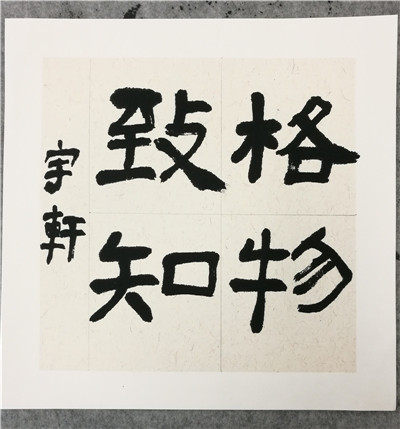 格物
致知
宇軒